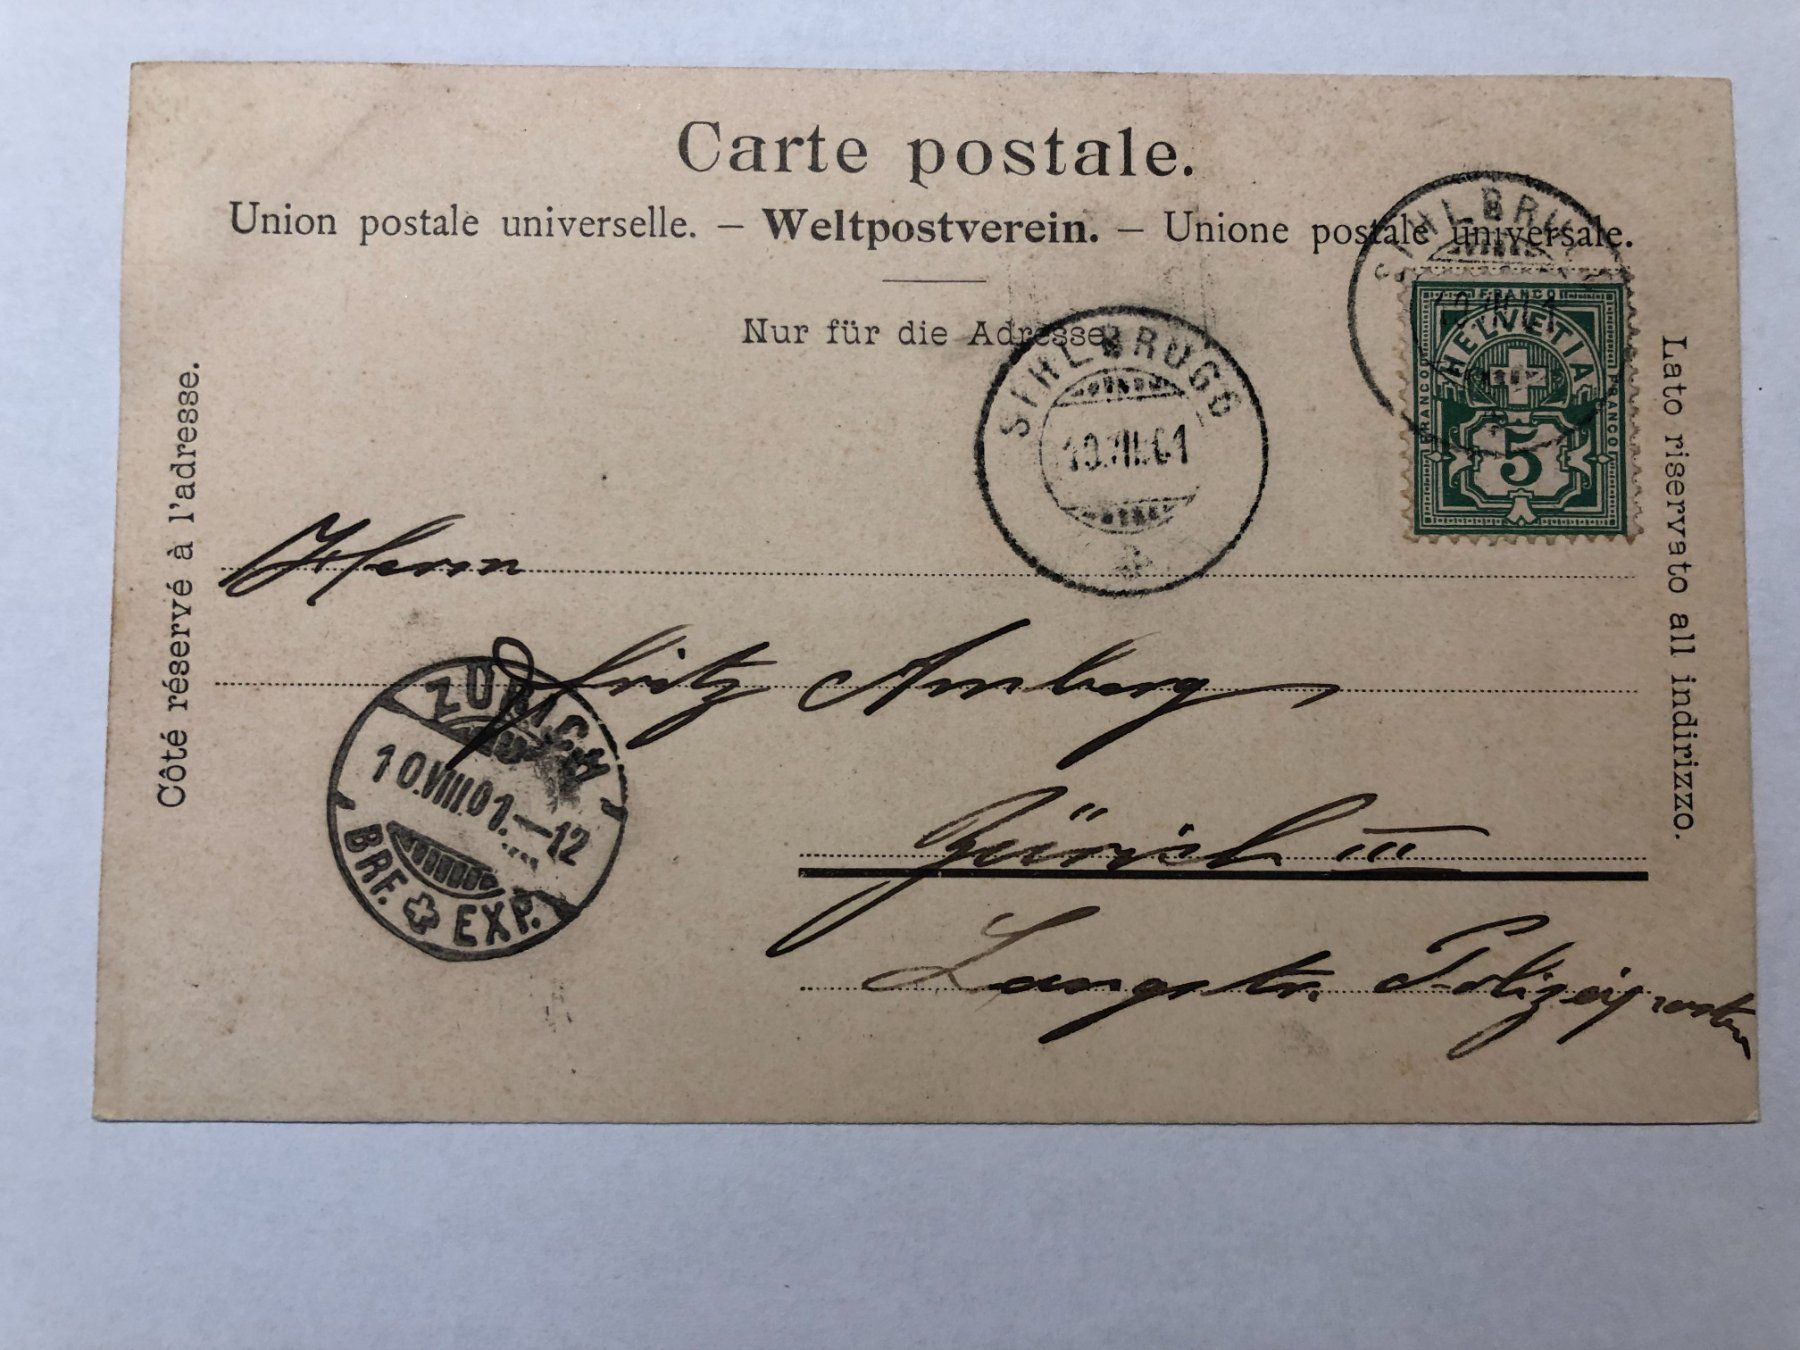 Carte postale.
Union postale universelle. – Weltpostverein. – Unione postale universale.
Nur für die Adresse.
Côté réservé à l'adresse.
Lato riservato all indirizzo.
SIHLBRUGG
FRANCO
HELVETIA
FRANCO
FRANCO
5
SIHLBRUGG
10.VIII.01
Herrn
Fritz Amberg
ZÜRICH
10.VIII.01.–12
BRF. EXP.
Zürich III
Langstr. Polizeiposten